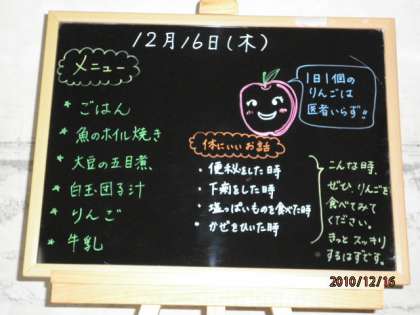 12月16日(木)
メニュー
* ごはん
* 魚のホイル焼き
* 大豆の五目煮
* 白玉団子汁
* りんご
* 牛乳
1日1個の
りんごは
医者いらず!!
体にいいお話
・便秘をした時
・下痢をした時
・塩っぱいものを食べた時
・かぜをひいた時
こんな時、
ぜひ、りんごを
食べてみて
ください。
きっと スッキリ
するはずです。
2010/12/16